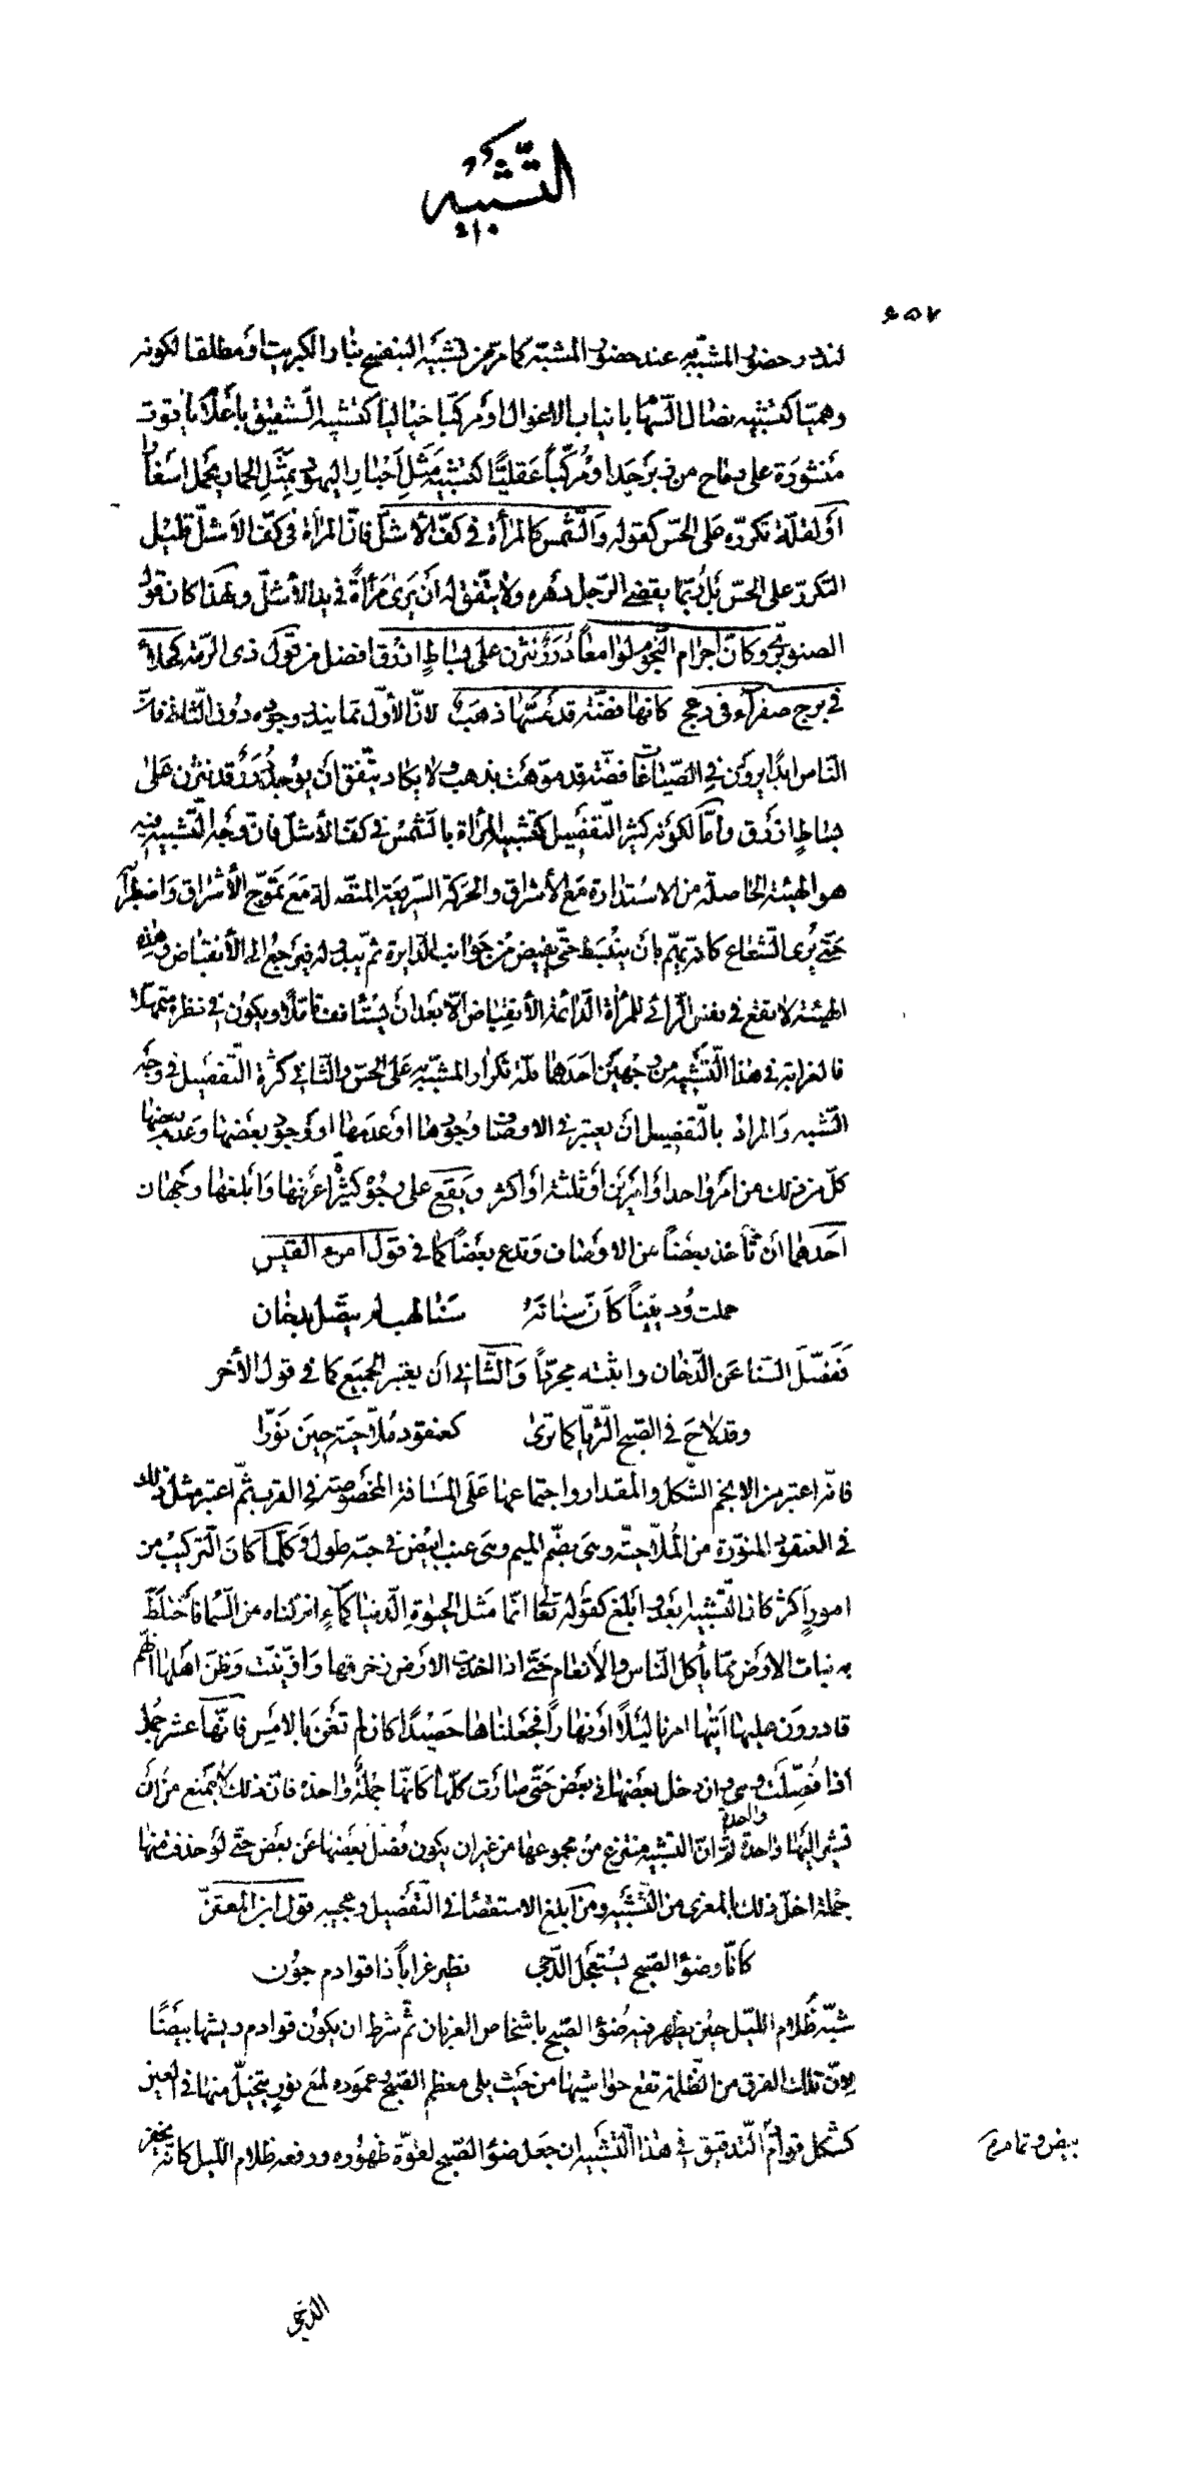 التّشبيه
٤٥٧
لندور حضور المشبّه به عند حضور المشبّه كما مرّ من تشبيه البنفسج بنار الكبريت او مطلقا لكونه
وهميّا كتشبيه نصال السّهام بانياب الاغوال او مركّبا خياليا كتشبيه الشقيق باعلام ياقوت
منشورة على رماح من زبرجد او مركّباً عقليًّا كتشبيه مَثَلِ احبار اليهود بمَثَلِ الحمار يحمل اسفارا
او لقلّة تكرّره على الحسّ كقوله والشّمس كالمرأة في كفّ الاشلّ فانّ المرأة في كفّ الاشلّ قليل
التكرّر على الحسّ بل ربّما يقضي الرّجل دهره ولا يتّفق له أن يَرى مرأةً في يد الأشلّ ولهذا كان قول
الصنوبريّ وكانّ اجرام النّجوم لوامعاً دُرَرٌ نثرن على بساطٍ ازرق افضل من قول ذى الرّمّة كحلاء
في برج صفراء في دعج كانها فضّة قد مسّها ذهب لانّ الأوّل ممّا يندر وجوده دون الثّاني فانّ
النّاس ابدًا يرون في الصّياغات فضّة قد موّهت بذهب ولا يكاد يتّفق ان يوجد دُرَر قد نثرن على
بساطٍ ازرق وامّا لكونه كثير التّفصيل كتشبيه المرأة بالشّمس في كفّ الأشلّ فانّ وجه التّشبيه فيه
هو الهيئة الحاصلة من الاستدارة مع الأشراق والحركة السّريعة المتّصلة مَعَ تموّج الأشراق واضطرابه
حتّى يُرى الشّعاع كانّه يهمّ بان ينبسط حتّى يفيض من جوانب الدّايرة ثمّ يبدو له فيرجع الى الأنقباض وهذه
الهيئة لا تقع في نفس الرّائي للمرأة الدّائمة الأنقباض الّا بعد ان يستأنف تامّلا ويكون في نظره متمهّلا
فالغرابة في هذا التّشبيه من جهتين احدهما قلّة تكرار المشبّه به على الحسّ والثّاني كثرة التّفصيل في وجه
التّشبه والمراد بالتّفصيل ان يعتبر في الاوصاف وجودها او عدمها او وجود بعضها وعدم بعضها
كلّ من ذلك من امر واحد او امرين او ثلثة او اكثر ويقع على وجوه كثيرة اعرفها وابلغها وجهان
احدهما ان تأخذ بعضاً من الاوصاف وتدع بعضاً كما في قول امرء القيس
حملت رُدينيّاً كأنّ سنانه سَنا لهب لم يتّصل بدخان
ففصّل السّنا عن الدّخان واثبته مجرّداً والثّاني ان يعتبر الجميع كما في قول الأخر
وقد لاح في الصّبح الثّريّا كما ترى كعنقود مُلّاحيّة حين نوّرا
فانّه اعتبر من الانجم الشّكل والمقدار واجتماعها على المسافة المخصوصة في القرب ثمّ اعتبر مثل ذلك
في العنقود المنوّرة من المُلّاحيّة وهى بضمّ الميم وهى عنب ابيض في حبّه طول وكلّما كان التّركيب من
امورٍ اكثر كان التّشبيه ابعد وابلغ كقوله تعا انّما مثل الحيوة الدّنيا كمآءٍ انزلناه من السّمآء فاختلط
به نبات الارض ممّا يأكل النّاس والأنعام حتّى اذا اخذت الارض زخرفها وازّيّنت وظنّ اهلها انّهم
قادرون عليها اتيها امرنا ليلًا او نهاراً فجعلناها حصيدًا كان لم تغن بالامس فانّها عشر جمل
اذا فُصّلت وهى وان دخل بعضها في بعض حتّى صارت كلّها كانّها جملة واحدة فانّ ذلك لا يمنع من ان
تشير اليها واحدة واحدة ثمّ انّ التشبيه منتزع من مجموعها من غير ان يكون فُصل بعضها عن بعض حتّى لو حذف منها
جملة اخلّ ذلك بالمغزى من التّشبيه ومن ابلغ الاستقصا في التّفصيل وعجيبه قول ابن المعتزّ
كانّا وضؤ الصّبح يستعجل الدّجى نطير غراباً ذا قوادم جون
شبّه ظلام اللّيل حين يظهر فيه ضؤ الصّبح باشخاص الغربان ثمّ شرط ان يكون قوادم ريشها بيضًا
لانّ تلك الفرق من الظّلمة تقع حواشيها من حيث يلى معظم الصّبح وعموده لمع نور يتخيّل منها في العين
كشكل قوادم بيض وتمام التّدقيق في هذا التّشبيه ان جعل ضؤ الصّبح لقوّة ظهوره ودفعه ظلام اللّيل كانّه يحفز
بيض وتمام
الدّجى